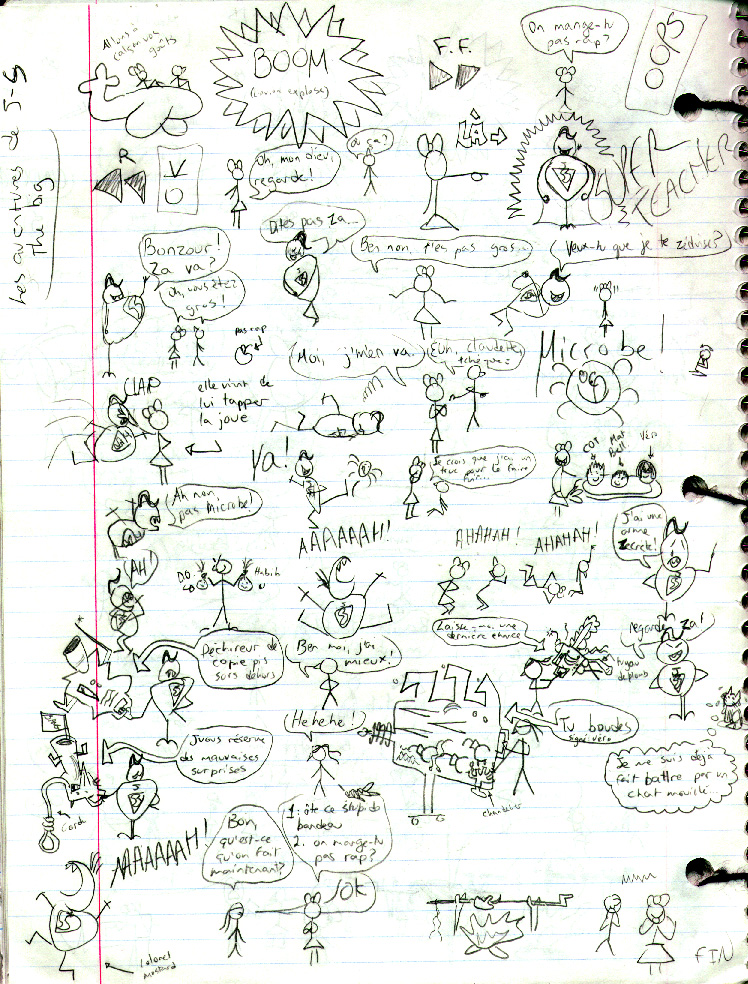 Les aventures de J-S
The big
Allons à
BOOM
F.F.
On mange-tu
pas rap?
OOPS
R
V
O
Oh, mon dieu,
regarde!
où ça?
LÀ
SUPER
TEACHER
Bonzour!
Za va?
Oh, vous êtez
gros!
pas cap
Dites pas za...
Ben non, t'es pas gros...
Veux-tu que je te zéduise?
CLAP
elle vient de
lui tapper
la joue
Moi, j'm'en va.
Euh, claudette,
Microbe!
Va!
Je crois que j'ai un
truc pour le faire
COT
Mat
Bell
Véro
Ah non,
pas Microbe!
AAAAAAH!
AHAHAH!
AHAHAH!
J'ai une
arme
zecrète!
AH!
D.O.
Hubih
Laisse-moi une
dernière chance
regarde za!
tuyau
de plomb
Déchireur de
copie pis
sors dehors
Ben moi, j'ai
mieux!
Hehehe!
Tu boudes
signé: véro
chandelier
Je me suis déjà
fait battre par un
chat mouillé...
J'vous réserve
des mauvaises
surprises
Corde
AAAAAAH!
Bon,
qu'est-ce
qu'on fait
maintenant?
1: ôte ce stupide
bandeau
2. on mange-tu
pas rap?
OK
Colonel
moutard
FIN